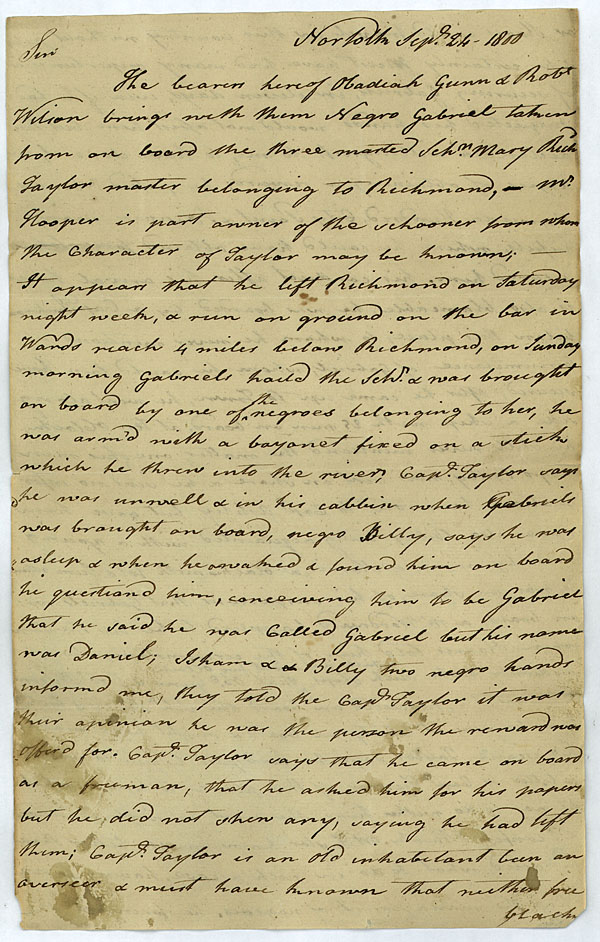 Norfolk Sepr. 24 - 1800
Sir
The bearers hereof Obadiah Gunn & Robt.
Wilson brings with them Negro Gabriel taken
from on board the three masted Schr. Mary Richd
Taylor master belonging to Richmond, — Mr.
Hooper is part owner of the schooner from whom
the Character of Taylor may be known; —
It appears that he left Richmond on Saturday
night week, & run on ground on the bar in
Wards reach 4 miles below Richmond, on Sunday
morning Gabriels haild the Schr. & was brought
on board by one of the negroes belonging to her, he
was arm'd with a bayonet fixed on a stick
which he threw into the river, Capt. Taylor says
he was unwell & in his cabbin when Gabriels
was brought on board, negro Billy, says he was
asleep & when he awaked & found him on board
he questiond him, conceiving him to be Gabriel
that he said he was Called Gabriel but his name
was Daniel; Isham & & Billy two negro hands
informd me, they told the Capt. Taylor it was
their opinian he was the person the reward was
offerd for. Capt. Taylor says that he came on board
as a freeman, that he asked him for his papers
but he did not shew any, saying he had left
them; Capt. Taylor is an old inhabetant been an
overseer & must have known that neither free
black